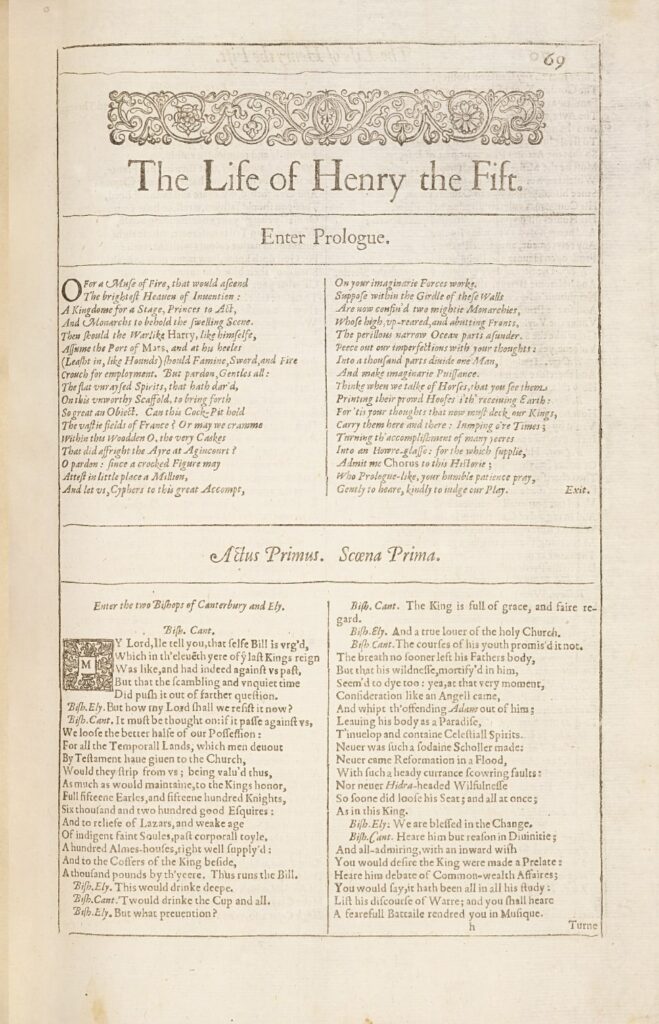 69
The Life of Henry the Fift.
Enter Prologue.
O For a Muse of Fire, that would ascend
The brightest Heauen of Inuention:
A Kingdome for a Stage, Princes to Act,
And Monarchs to behold the swelling Scene.
Then should the Warlike Harry, like himselfe,
Assume the Port of Mars, and at his heeles
(Leasht in, like Hounds) should Famine, Sword, and Fire
Crouch for employment. But pardon, Gentles all:
The flat vnraysed Spirits, that hath dar'd,
On this vnworthy Scaffold, to bring forth
So great an Obiect. Can this Cock-Pit hold
The vastie fields of France? Or may we cramme
Within this Woodden O, the very Caskes
That did affright the Ayre at Agincourt?
O pardon: since a crooked Figure may
Attest in little place a Million,
And let vs, Cyphers to this great Accompt,
On your imaginarie Forces worke.
Suppose within the Girdle of these Walls
Are now confin'd two mightie Monarchies,
Whose high, vp-reared, and abutting Fronts,
The perillous narrow Ocean parts asunder.
Peece out our imperfections with your thoughts:
Into a thousand parts diuide one Man,
And make imaginarie Puissance.
Thinke when we talke of Horses, that you see them
Printing their prowd Hoofes i'th' receiuing Earth:
For 'tis your thoughts that now must deck our Kings,
Carry them here and there: Iumping o're Times;
Turning th'accomplishment of many yeeres
Into an Howre-glasse: for the which supplie,
Admit me Chorus to this Historie;
Who Prologue-like, your humble patience pray,
Gently to heare, kindly to iudge our Play. Exit.
Actus Primus. Scœna Prima.
Enter the two Bishops of Canterbury and Ely.
Bish. Cant.
MY Lord, Ile tell you, that selfe Bill is vrg'd,
Which in th'eleuẽth yere of ỹ last Kings reign
Was like, and had indeed against vs past,
But that the scambling and vnquiet time
Did push it out of farther question.
Bish. Ely. But how my Lord shall we resist it now?
Bish. Cant. It must be thought on: if it passe against vs,
We loose the better halfe of our Possession:
For all the Temporall Lands, which men deuout
By Testament haue giuen to the Church,
Would they strip from vs; being valu'd thus,
As much as would maintaine, to the Kings honor,
Full fifteene Earles, and fifteene hundred Knights,
Six thousand and two hundred good Esquires:
And to reliefe of Lazars, and weake age
Of indigent faint Soules, past corporall toyle,
A hundred Almes-houses, right well supply'd:
And to the Coffers of the King beside,
A thousand pounds by th'yeere. Thus runs the Bill.
Bish. Ely. This would drinke deepe.
Bish. Cant. 'Twould drinke the Cup and all.
Bish. Ely. But what preuention?
Bish. Cant. The King is full of grace, and faire re-
gard.
Bish. Ely. And a true louer of the holy Church.
Bish. Cant. The courses of his youth promis'd it not.
The breath no sooner left his Fathers body,
But that his wildnesse, mortify'd in him,
Seem'd to dye too: yea, at that very moment,
Consideration like an Angell came,
And whipt th'offending Adam out of him;
Leauing his body as a Paradise,
T'inuelop and containe Celestiall Spirits.
Neuer was such a sodaine Scholler made:
Neuer came Reformation in a Flood,
With such a heady currance scowring faults:
Nor neuer Hidra-headed Wilfulnesse
So soone did loose his Seat; and all at once;
As in this King.
Bish. Ely. We are blessed in the Change.
Bish. Cant. Heare him but reason in Diuinitie;
And all-admiring, with an inward wish
You would desire the King were made a Prelate:
Heare him debate of Common-wealth Affaires;
You would say, it hath been all in all his study:
List his discourse of Warre; and you shall heare
A fearefull Battaile rendred you in Musique.
h Turne